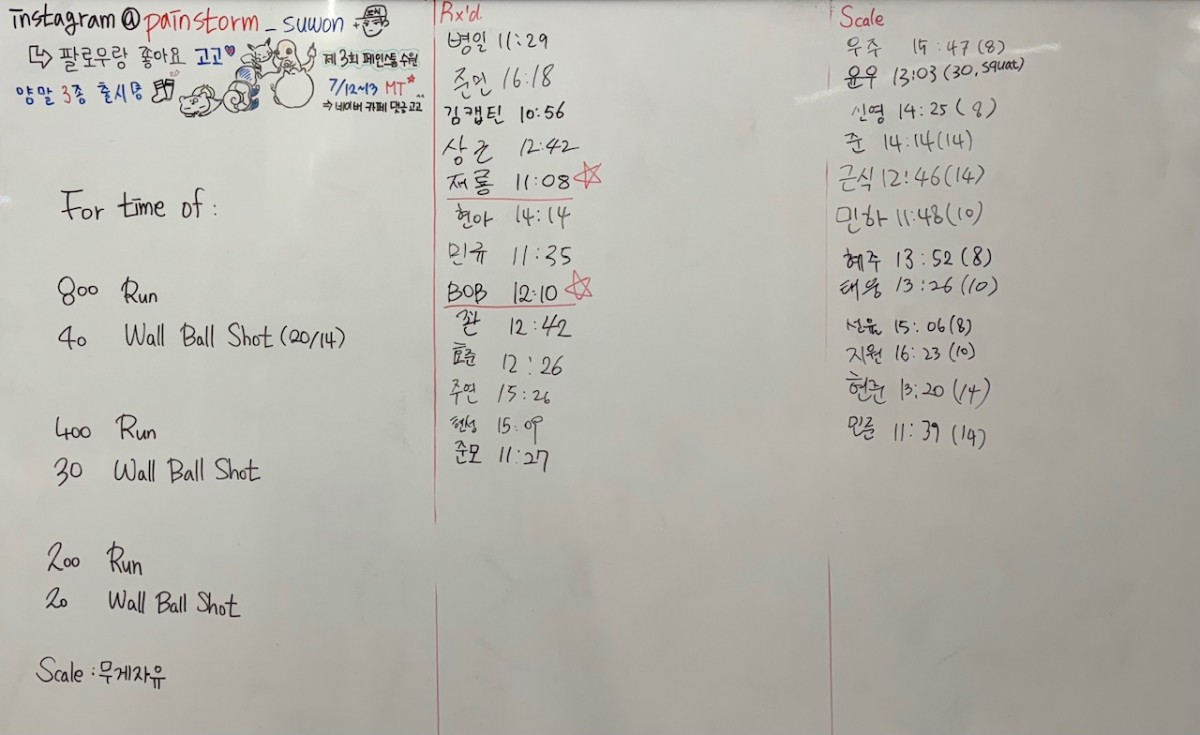 instagram@painstorm_suwon
팔로우랑 좋아요 고고
양말 3종 출시중
제 3회 페인스톰수원
7/12~13 MT
⇒ 네이버 카페 댓글고고
For time of :
800 Run
40 Wall Ball Shot (20/14)
400 Run
30 Wall Ball Shot
200 Run
20 Wall Ball Shot
Scale : 무게자유
Rx'd
병일 11:29
준민 16:18
김캡틴 10:56
상근 12:42
재룡 11:08
현아 14:14
민규 11:35
BOB 12:10
12:42
효준 12:26
주연 15:26
현성 15:09
준모 11:27
Scale
우주 :47 (8)
윤우 13:03 (30, squat)
신영 14:25 (8)
준 14:14 (14)
근식 12:46 (14)
민하 11:48 (10)
혜주 13:52 (8)
태웅 13:26 (10)
선율 15:06 (8)
지원 16:23 (10)
현준 13:20 (14)
민준 11:39 (14)